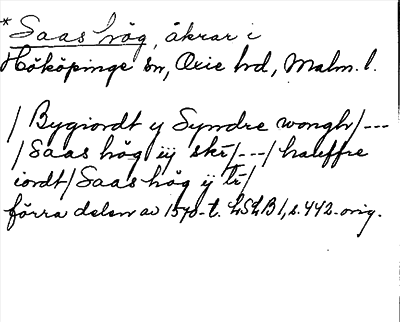 *Saas hög, åkrar i
Hököpinge sn, Oxie hd, Malm. l.
/ Bygiordt y Syndre wongh/---
/ Saas hög iij skr/---/ hauffre
iordt/ Saas hög ij tr/
förra delen av 1570-t. LSLB I, s. 442. orig.